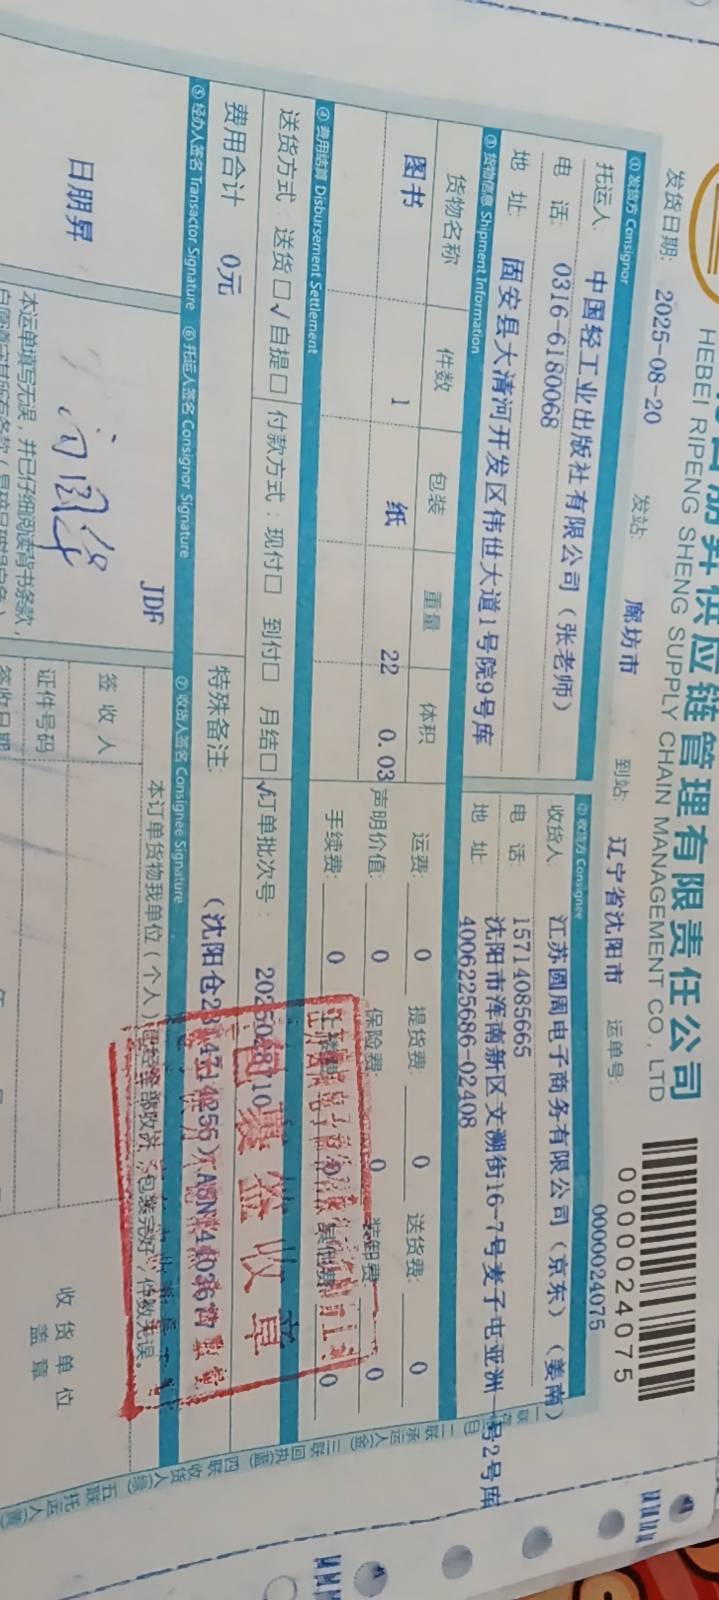 朋昇供应链管理有限责任公司
HEBEI RIPENG SHENG SUPPLY CHAIN MANAGEMENT CO., LTD
0000024075
发货日期: 2025-08-20 发站: 廊坊市 到站: 辽宁省沈阳市 运单号: 0000024075
① 发货方 Consignor ② 收货方 Consignee
托运人: 中国轻工业出版社有限公司（张老师） 收货人: 江苏圆周电子商务有限公司（京东）（姜南）
电 话: 0316-6180068 电 话: 15714085665
地 址: 固安县大清河开发区伟世大道1号院9号库 地 址: 沈阳市浑南新区文溯街16-7号麦子屯亚洲一号2号库
4006225686-02408
③ 货物信息 Shipment Information
货物名称 件数 包装 重量 体积 运费: 0 提货费: 0 送货费: 0
图书 1 纸 22 0.03 声明价值: 0 保险费: 0 装卸费: 0
手续费: 0 0 其他费: 0
④ 费用结算 Disbursement Settlement
送货方式: 送货□√ 自提□ 付款方式: 现付□ 到付□ 月结□√ 订单批次号:
费用合计 0元 特殊备注:
⑤ 经办人签名 Transactor Signature ⑥ 托运人签名 Consignor Signature ⑦ 收货人签名 Consignee Signature
日朋昇
JDF
本运单填写无误，并已仔细阅读背书条款，
本订单货物我单位（个人）已经全部收讫，包装完好，件数无误。
签 收 人
证件号码
签收日期
收货单位
盖 章
包裹签收章